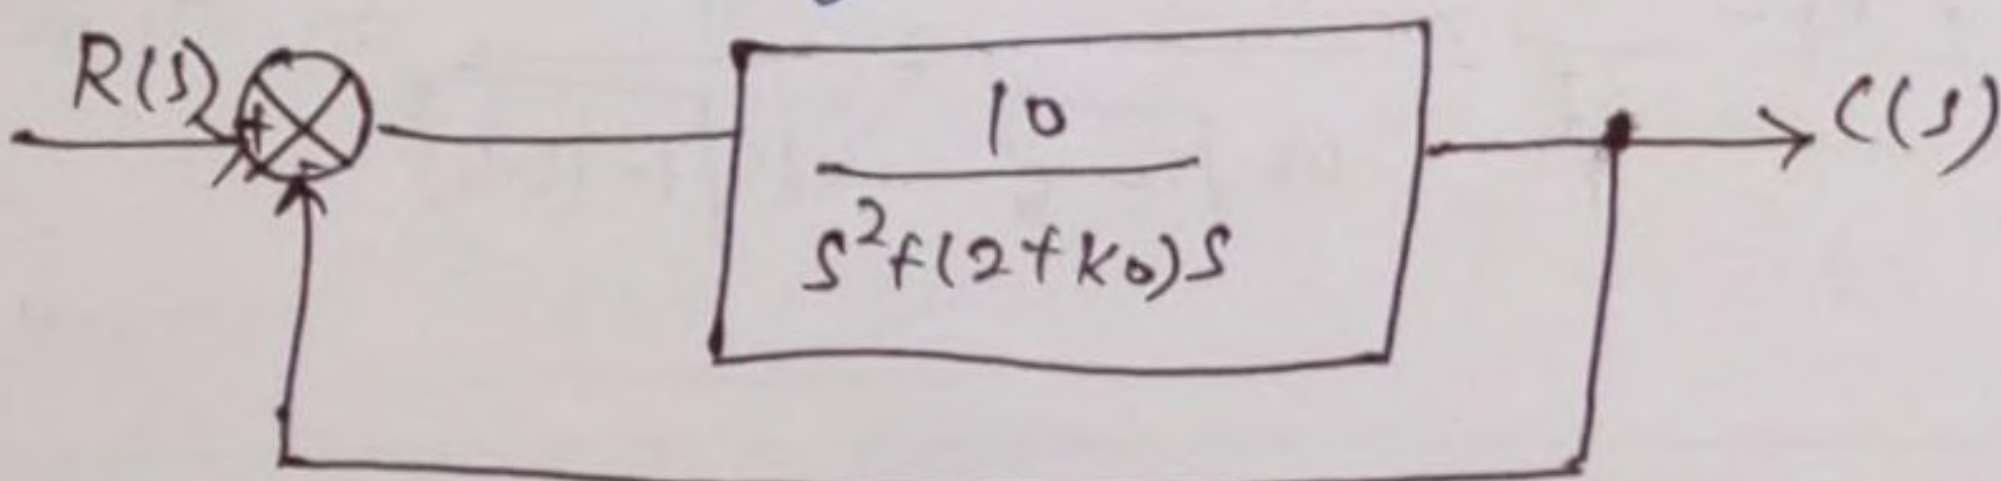 R(s)
+
-
10
s²+(2+K₀)s
C(s)